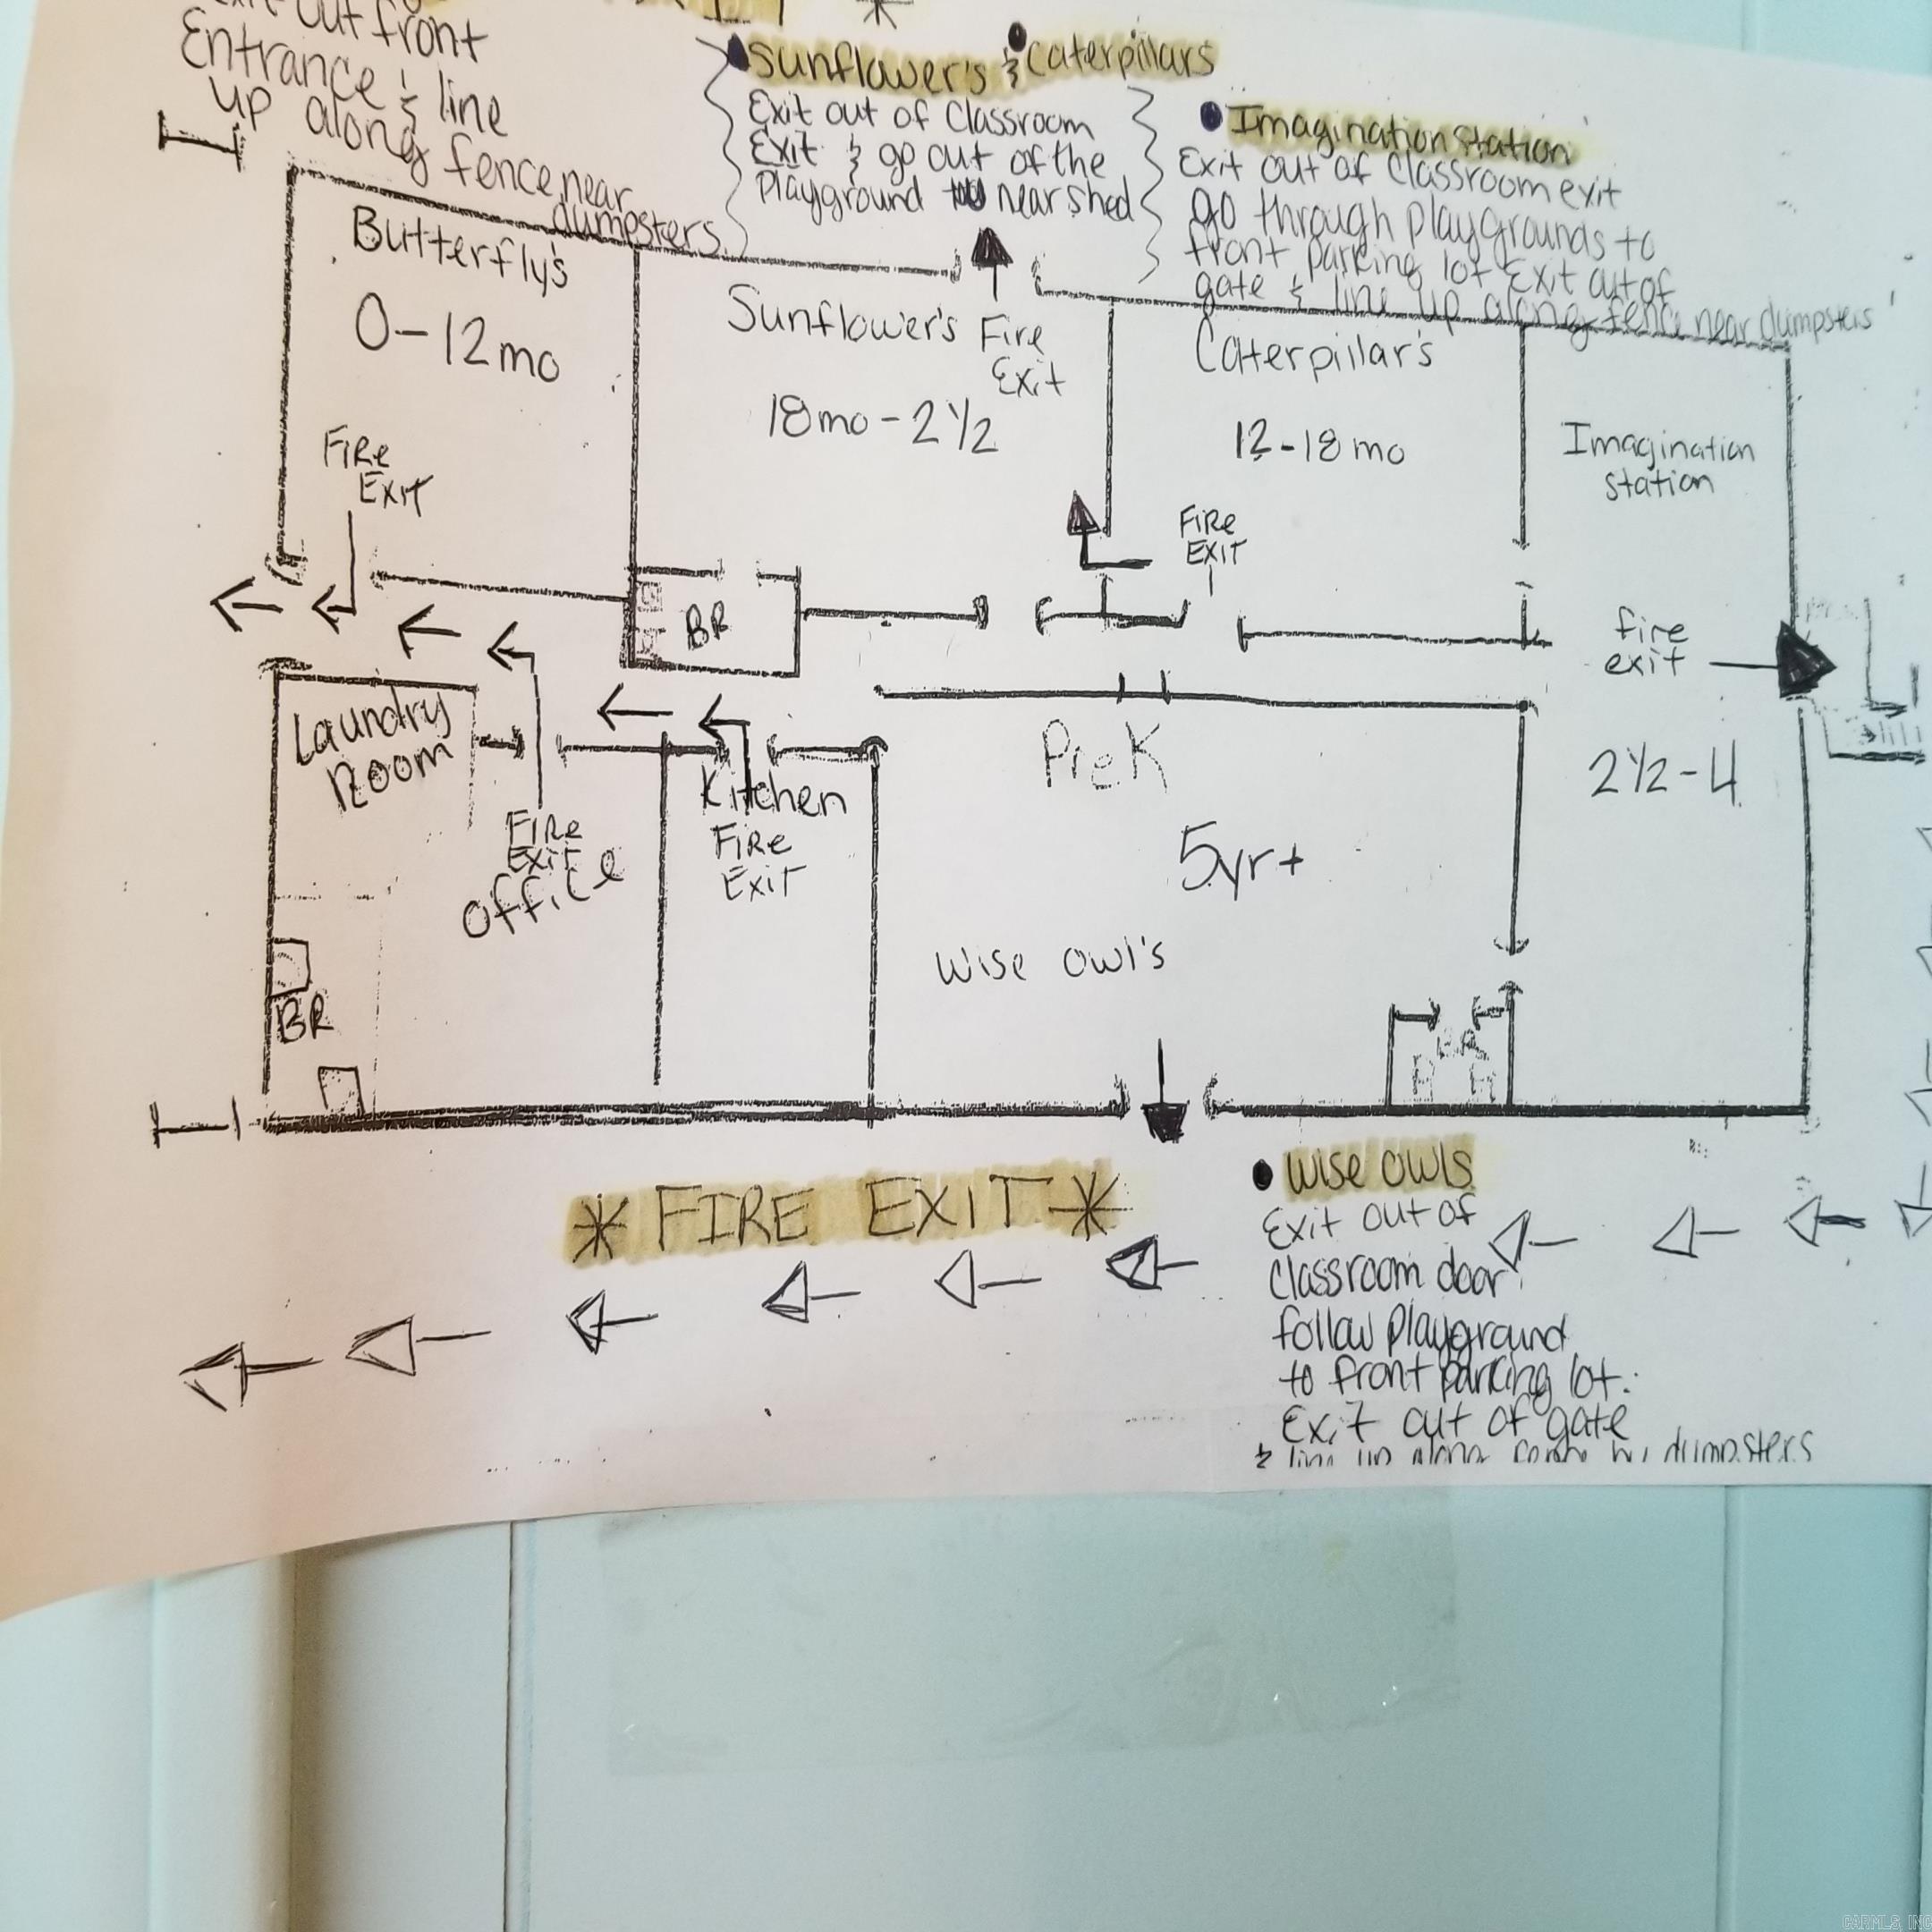 out front
Entrance & line
up along
fence near
dumpsters.
Sunflower's & Caterpillars
Exit out of Classroom
Exit & go out of the
Playground near shed
Imagination station
Exit out of Classroom exit
go through playgrounds to
front parking lot Exit out of
gate & line up along fence near dumpsters
Butterfly's
0-12 mo
Fire
Exit
Sunflower's
18mo - 2 1/2
Fire
Exit
Caterpillar's
12-18 mo
Fire
Exit
Imagination
station
fire
exit
2 1/2 - 4
BR
Laundry
Room
Fire
Exit
Office
Kitchen
Fire
Exit
PreK
5yr+
Wise Owl's
BR
* FIRE EXIT *
Wise Owls
Exit out of
Classroom door
follow Playground
to front parking lot.
Exit out of gate
& line up along dumpsters
CARMLS, INC